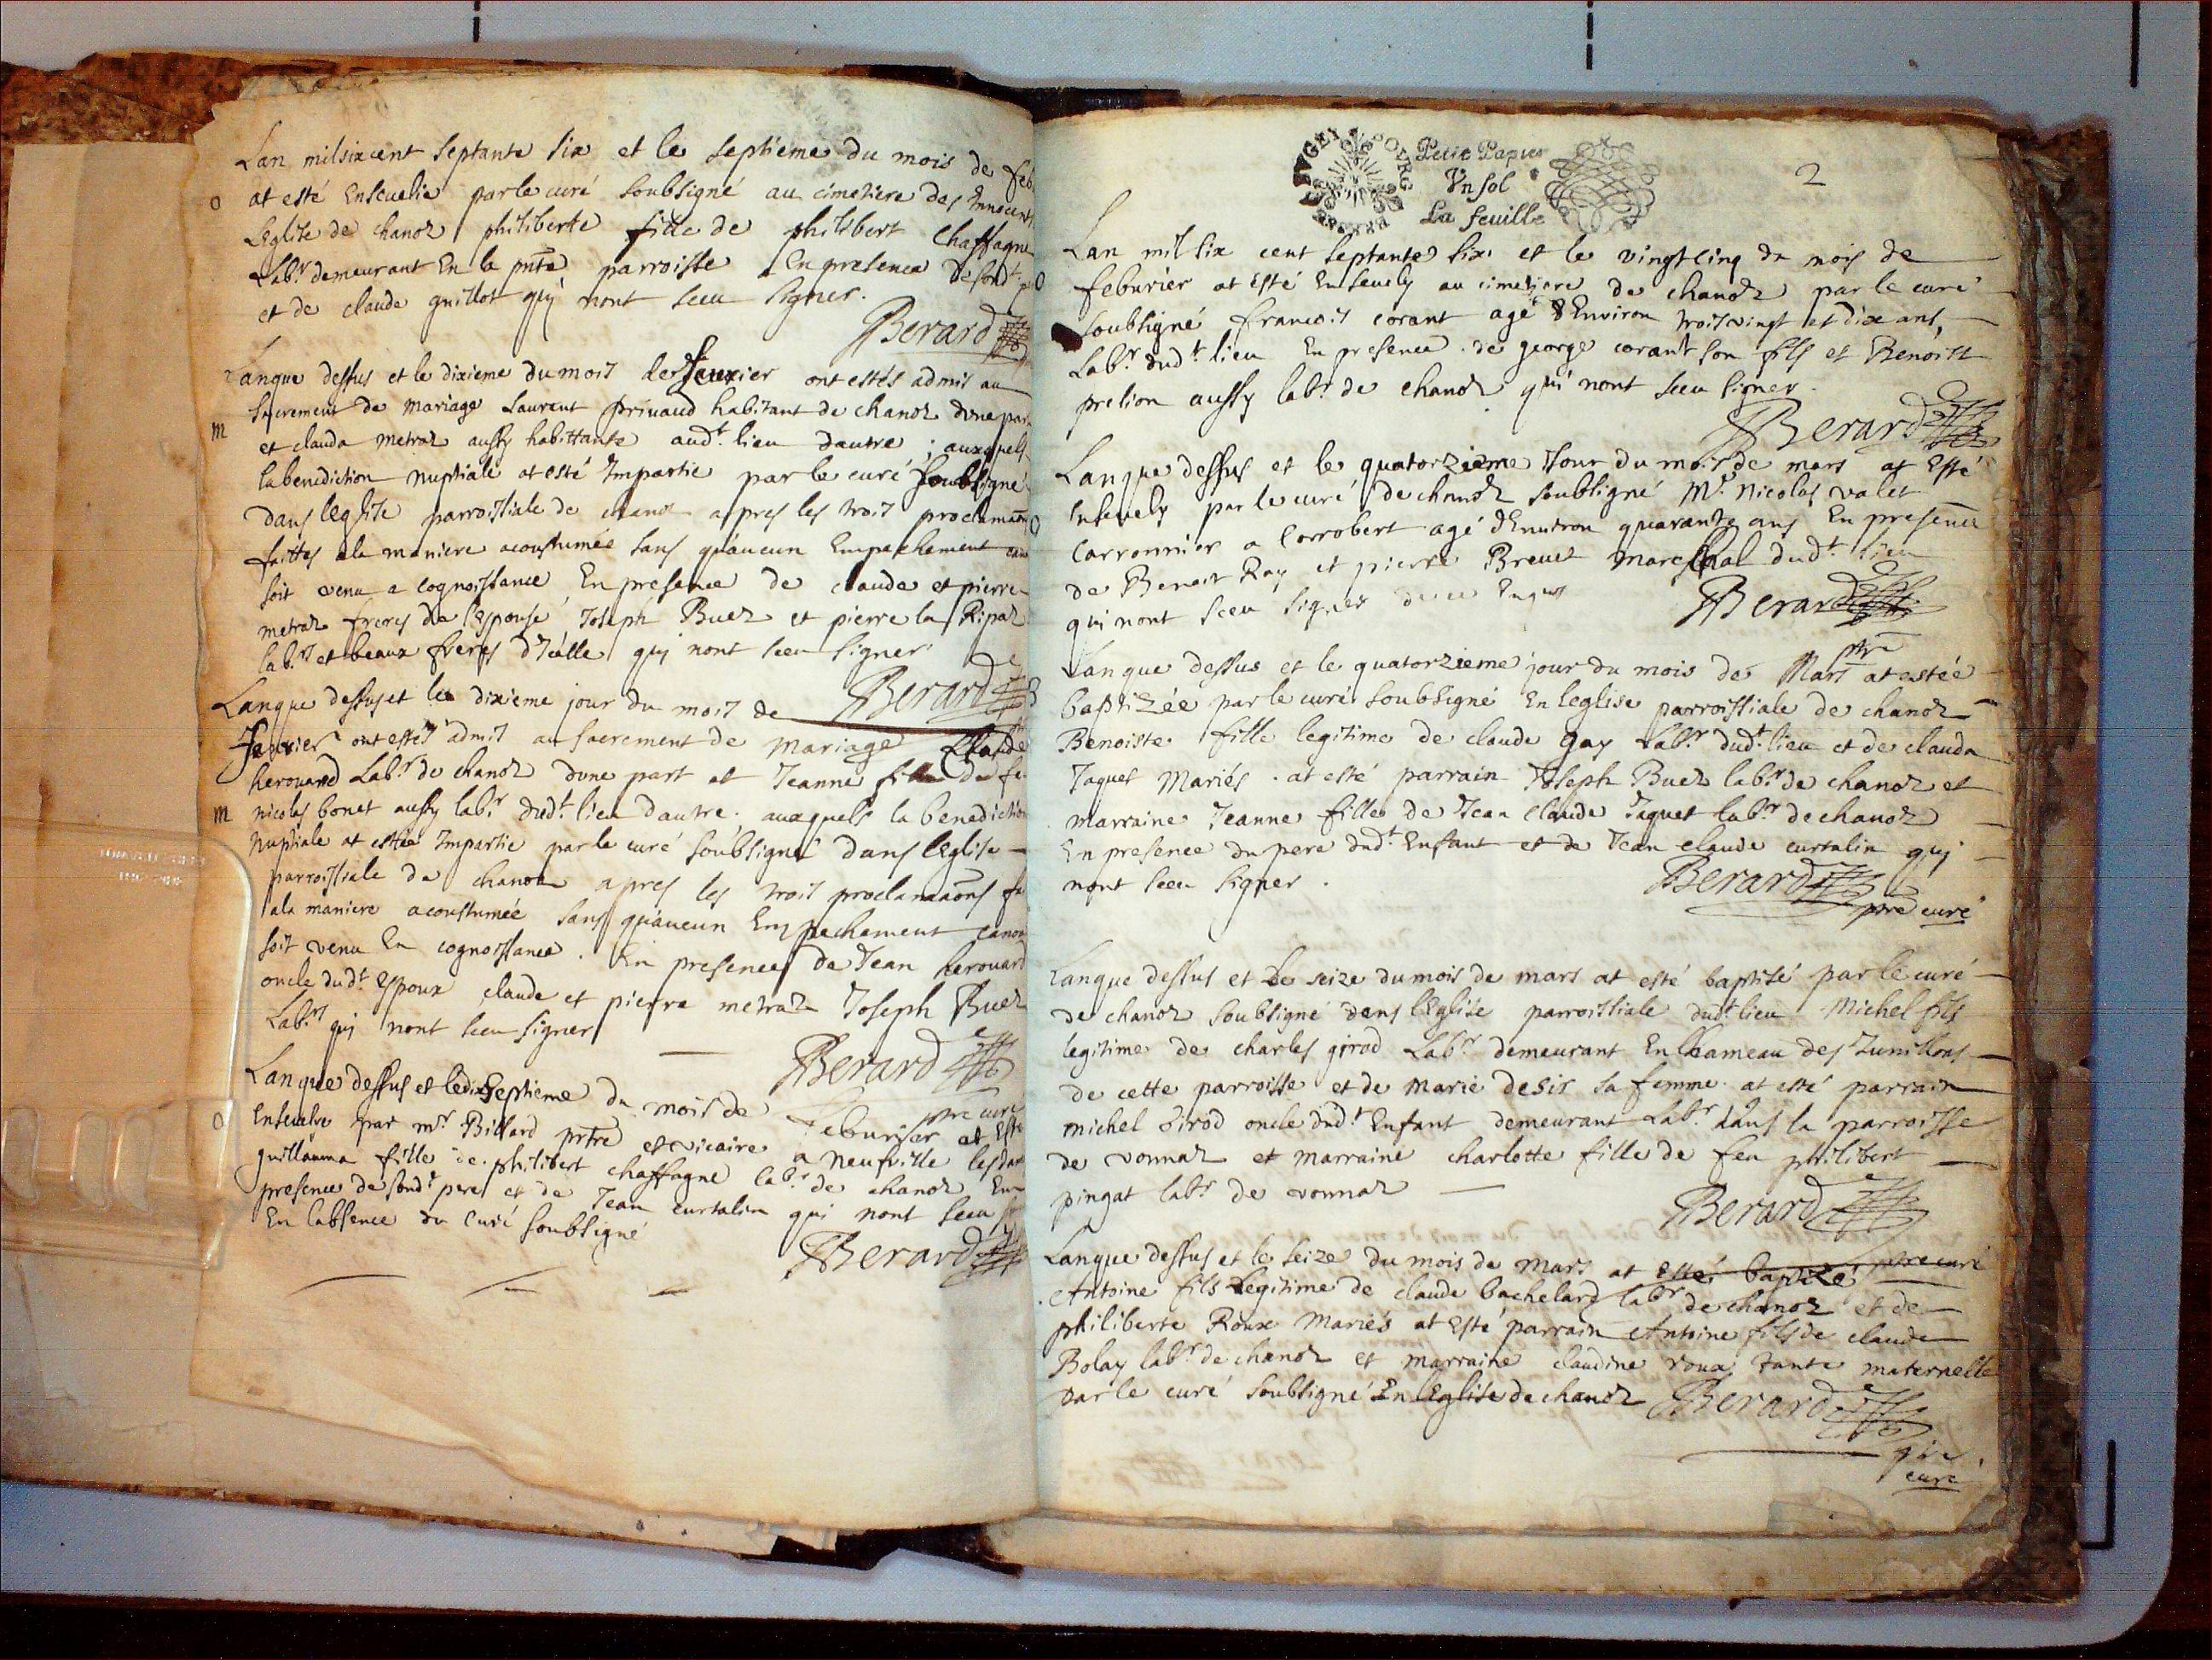 Lan milsixcent septante six et le septieme du mois de feb
o
at esté Enseuelie par le curé soubsigné au cimetiere des Innocents
LEglise de chanoz philiberte fille de philibert Chaffagne
Labr. demeurant En la pnte parroisse En presence de sond.t
et de claude guillot quy nont sceu signer.
Berard
Lanque dessus et le dixieme du mois de feurier ont estés admis au
sacrement de mariage Laurent priuaud habitant de chanoz dune part
m
et clauda metraz aussy habittante aud.t lieu dautre ; auxquels
la benediction nuptiale at esté Impartie par le curé soubsigné
dans leglise parroissiale de chanoz apres les trois proclamaons
faittes ala maniere acoustumée sans quaucun Empechement
soit venu a cognoissance En presence de claude et pierre
metraz freres de lespouse Joseph Buez et pierre la Ripaz
labrs et beaux freres dicelle quy nont sceu signer
Berard
Lanque dessus et le dixieme jour du mois de
feurier ont estés admis au sacrement de mariage Claude
herouard Labr. de chanoz dune part et Jeanne fille de feu
m
nicolas bonet aussy labr. dud.t lieu dautre. auxquels la benediction
nuptiale at estée Impartie par le curé soubsigné dans lEglise
parroissiale de chanoz apres les trois proclamaons
ala maniere acoustumée sans quaucun Empechement canon
soit venu En cognoissance. En presence de Jean herouard
oncle dud.t Espoux claude et pierre metraz Joseph Buez
Labrs qui nont sceu signer
Berard
ptre curé
Lan que dessus et le dixseptieme du mois de feburier at Esté
o
Enseuelie par mr. Billard prtre et vicaire a neufuille les dames
guillauma fille de philibert chaffagne labr. de chanoz En
presence de sond.t pere et de Jean curtalin qui nont sceu
En labsence du Curé soubsigné
Berard
BVGEY BOVRG
Petit Papier
Vn sol
La feuille
2
Lan mil six cent septante six et le vingtcinq du mois de
o
feburier at esté Enseuely au cimetiere de chanoz par le curé
soubsigné francois corant agé dEnviron troisvingt et dix ans,
Labr. dud.t lieu En presence de george corant son fils et Benoist
prelion aussy labr. de chanoz qui nont sceu signer.
Berard
Lanque dessus et le quatorzieme Jour du mois de mars at Esté
Enseuely par le curé de chanoz soubsigné Mr. Nicolas valet
o
Carronnier a Corrobert agé dEnuiron quarante ans En presence
de Benoit Ray et pierre Breuet mareschal dud.t lieu
qui nont sceu signer de ce Enquis
Berard
ptre
Lanque dessus et le quatorzieme jour du mois de Mars at estée
B
baptizée par le curé soubsigné En leglise parroissiale de chanoz
Benoiste fille legitime de claude gay Labr. dud.t lieu et de clauda
Jaquet Mariés. at esté parrain Joseph Buez labr. de chanoz et
marraine Jeanne fille de Jean Claude Jaquet labr. de chanoz
En presence du pere dud.t Enfant et de Jean claude curtalin quj
nont sceu signer.
Berard
ptre curé
Lanque dessus et Le seize du mois de mars at esté baptisé par le curé
de chanoz soubsigné dans lEglise parroissiale dud.t lieu Michel fils
legitime de charles girod Labr. demeurant En lhameau des Junillons
de cette parroisse et de marie desir sa femme. at esté parrain
michel Girod oncle dud.t Enfant demeurant Labr. dans la parroisse
de vonnaz et marraine charlotte fille de feu philibert
pingat labr. de vonnaz
Berard
ptre curé
Lanque dessus et le seize du mois de mars at esté baptizé
Antoine fils Legitime de claude bachelard labr. de chanoz et de
philiberte Roux Mariés at Esté parrain Antoine fils de claude
Bolay labr. de chanoz et marraine claudine roux tante maternelle
par le curé soubsigné En lEglise de chanoz Berard
ptre
curé